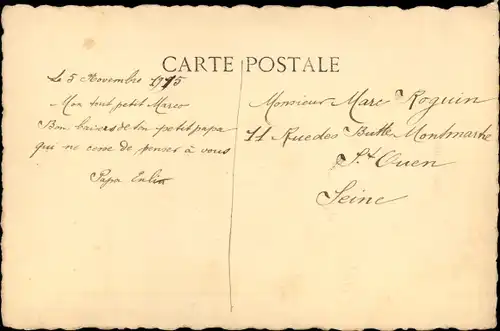 CARTE POSTALE
Le 5 Novembre 1915
Mon tout petit Marco
Bon baisers de ton petit papa
qui ne cesse de penser à vous
Papa
Monsieur Marc Roguin
11 Rue des Butte Montmartre
St Ouen
Seine